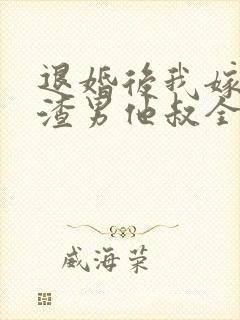 退婚後我嫁
渣男他叔全
威海荣